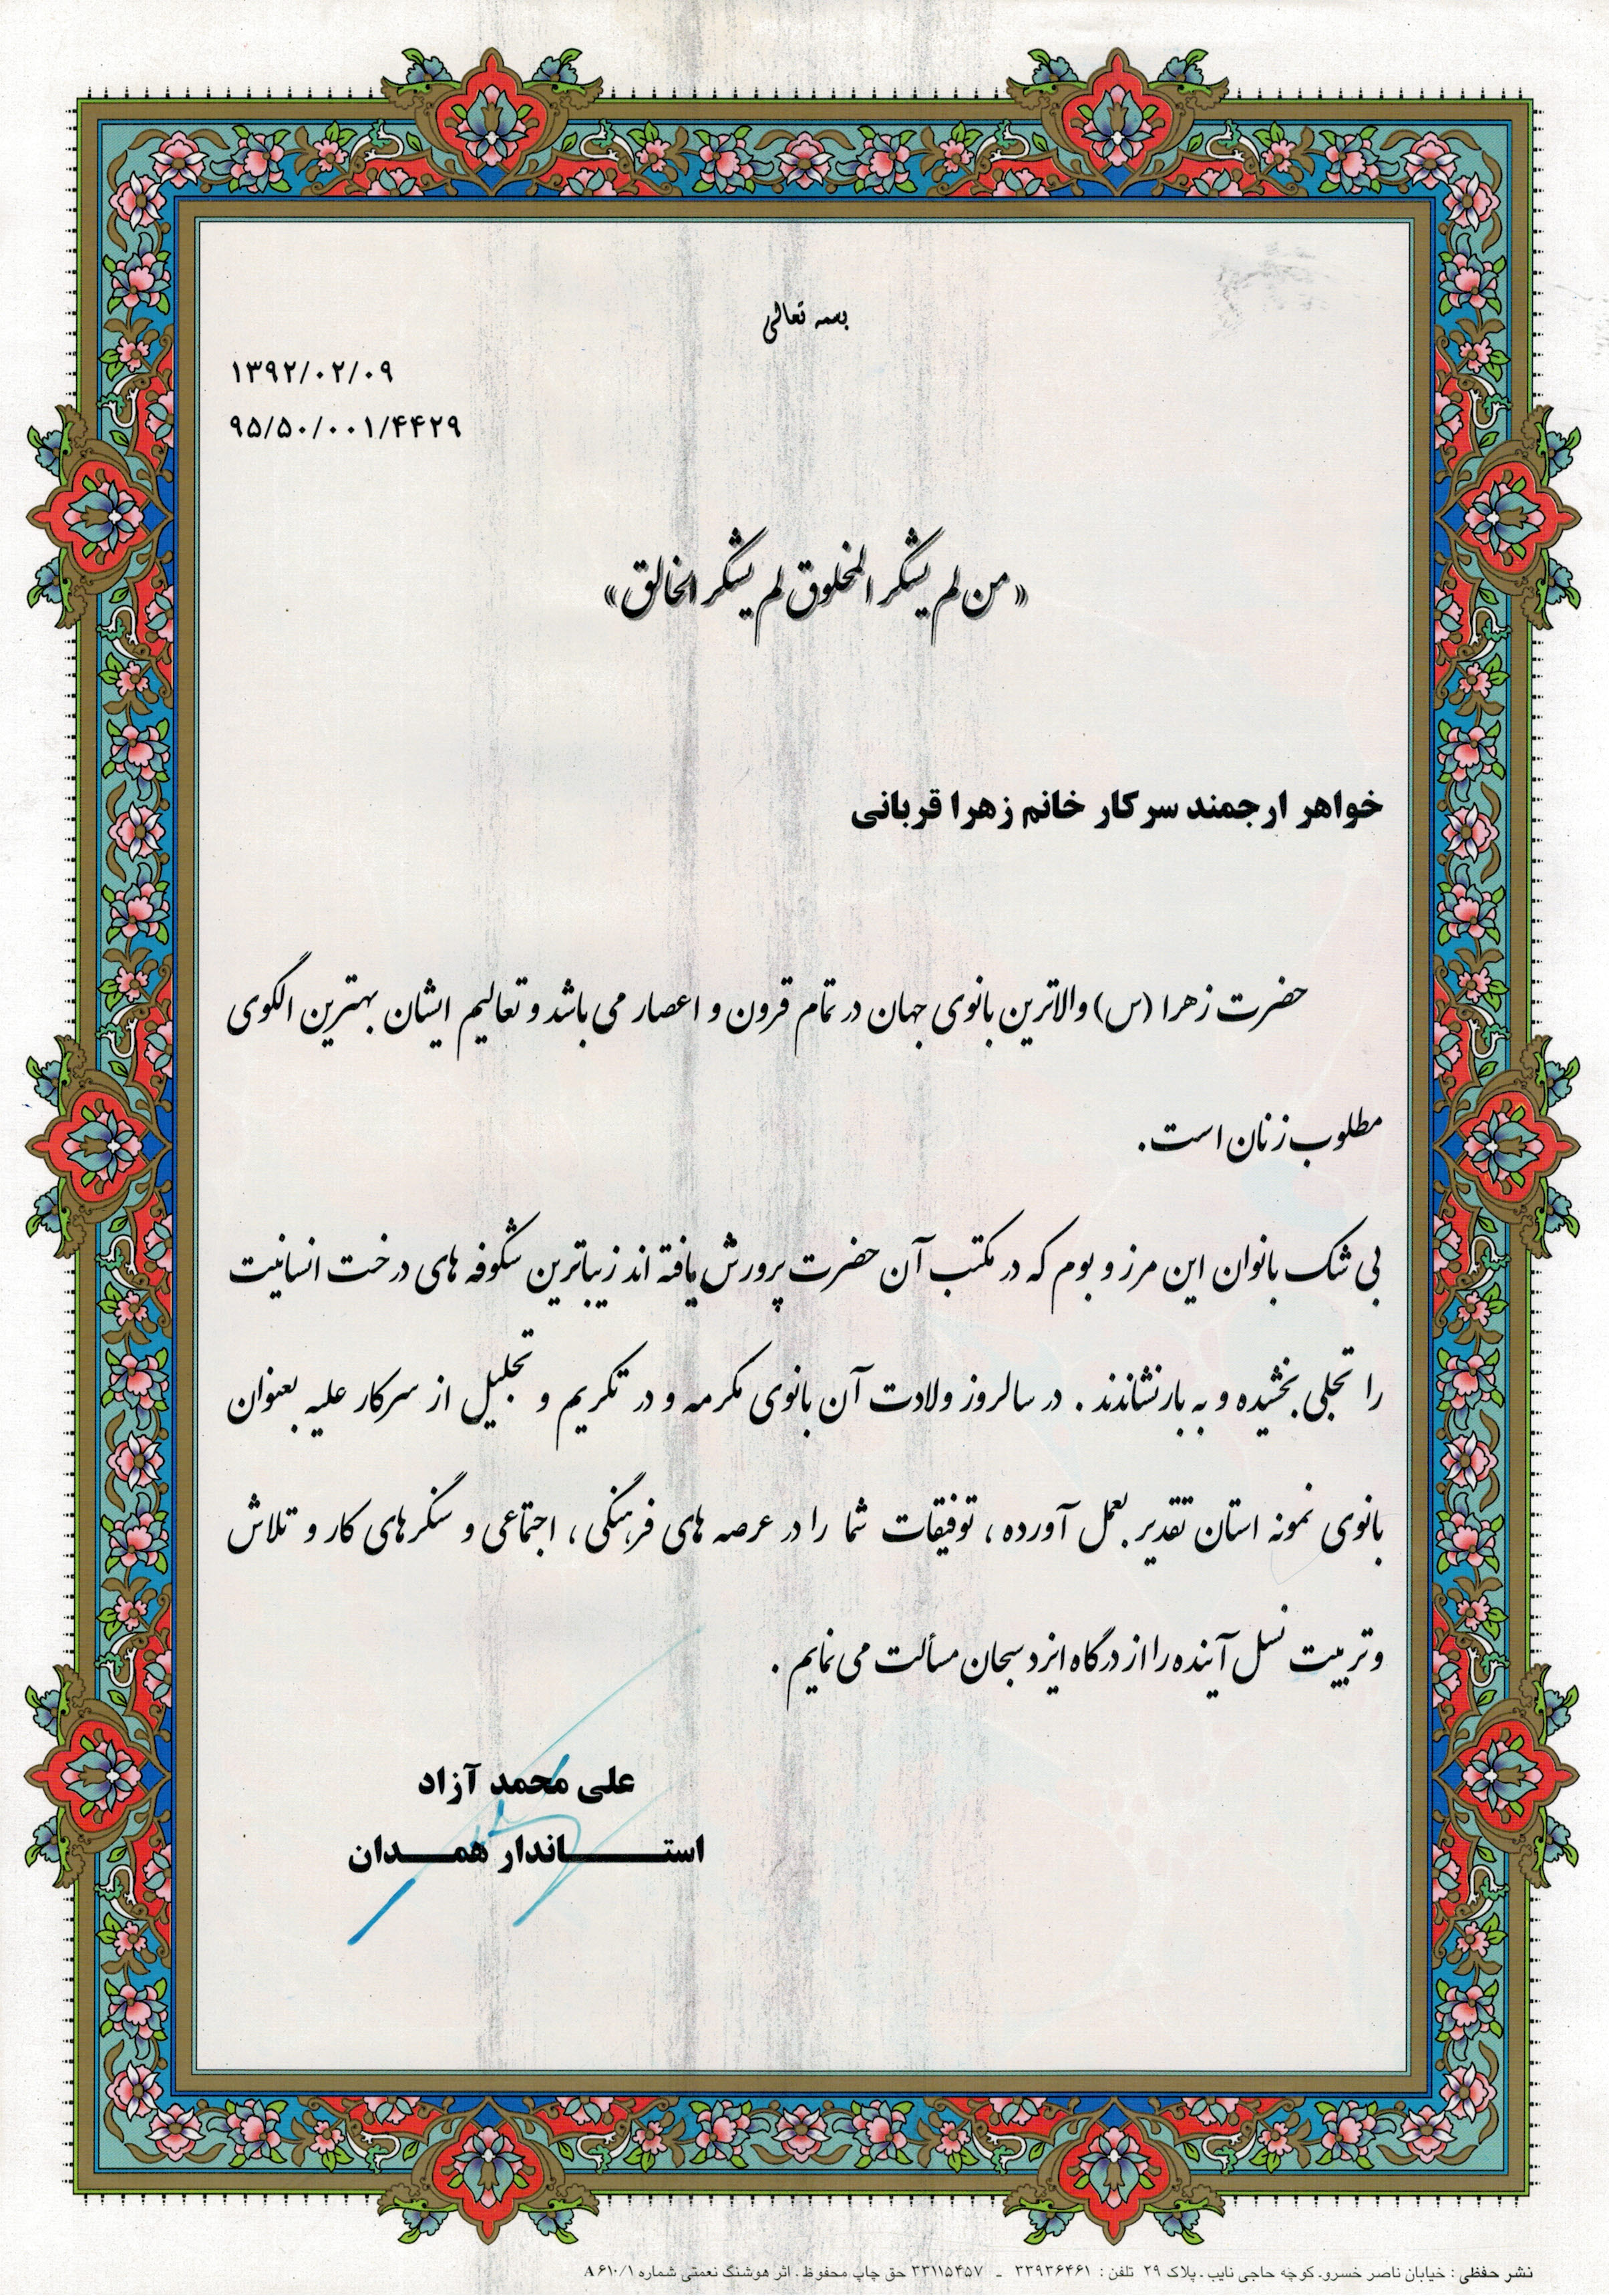 بسمه تعالی
۱۳۹۲/۰۲/۰۹
۹۵/۵۰/۰۰۱/۴۴۲۹
«من لم یشکر المخلوق لم یشکر الخالق»
خواهر ارجمند سرکار خانم زهرا قربانی
حضرت زهرا (س) والاترین بانوی جهان در تمام قرون و اعصار می باشد و تعالیم ایشان بهترین الگوی
مطلوب زنان است.
بی شک بانوان این مرز و بوم که در مکتب آن حضرت پرورش یافته اند زیباترین شکوفه های درخت انسانیت
را تجلی بخشیده و به بار نشاندند. در سالروز ولادت آن بانوی مکرمه و در تکریم و تجلیل از سرکار علیه بعنوان
بانوی نمونه استان تقدیر بعمل آورده، توفیقات شما را در عرصه های فرهنگی، اجتماعی و سنگرهای کار و تلاش
و تربیت نسل آینده را از درگاه ایزد سبحان مسألت می نمایم.
علی محمد آزاد
استاندار همدان
نشر حفظی : خیابان ناصر خسرو. کوچه حاجی نایب. پلاک ۲۹ تلفن : ۳۳۹۳۶۴۶۱ - ۳۳۱۱۵۴۵۷ حق چاپ محفوظ. اثر هوشنگ نعمتی شماره A۶۱۰/۱